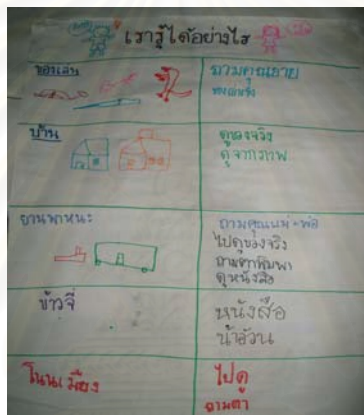 เรารู้ได้อย่างไร
ของเล่น
ถามคุณยาย
บ้าน
ดูของจริง
ดูจากภาพ
ยานพาหนะ
ถามคุณแม่+พ่อ
ไปดูของจริง
ถามตาพิมพา
ดูหนังสือ
ข้าวจี่
หนังสือ
น้าอ้วน
โนนเมือง
ไปดู
ถามตา